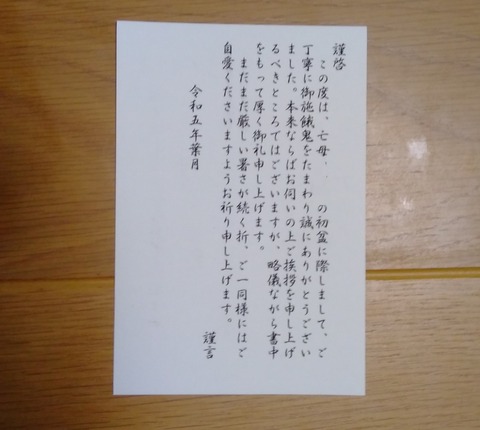 謹啓
この度は、亡母、　　の初盆に際しまして、ご
丁寧に御施餓鬼をたまわり誠にありがとうござい
ました。本来ならばお伺いの上ご挨拶を申し上げ
るべきところではございますが、略儀ながら書中
をもって厚く御礼申し上げます。
まだまだ厳しい暑さが続く折、ご一同様にはご
自愛くださいますようお祈り申し上げます。
謹言
令和五年葉月